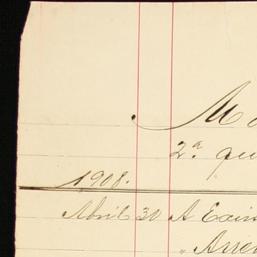 Mo
2ª qui
1908.
Abril 30 A Caix
" Arre